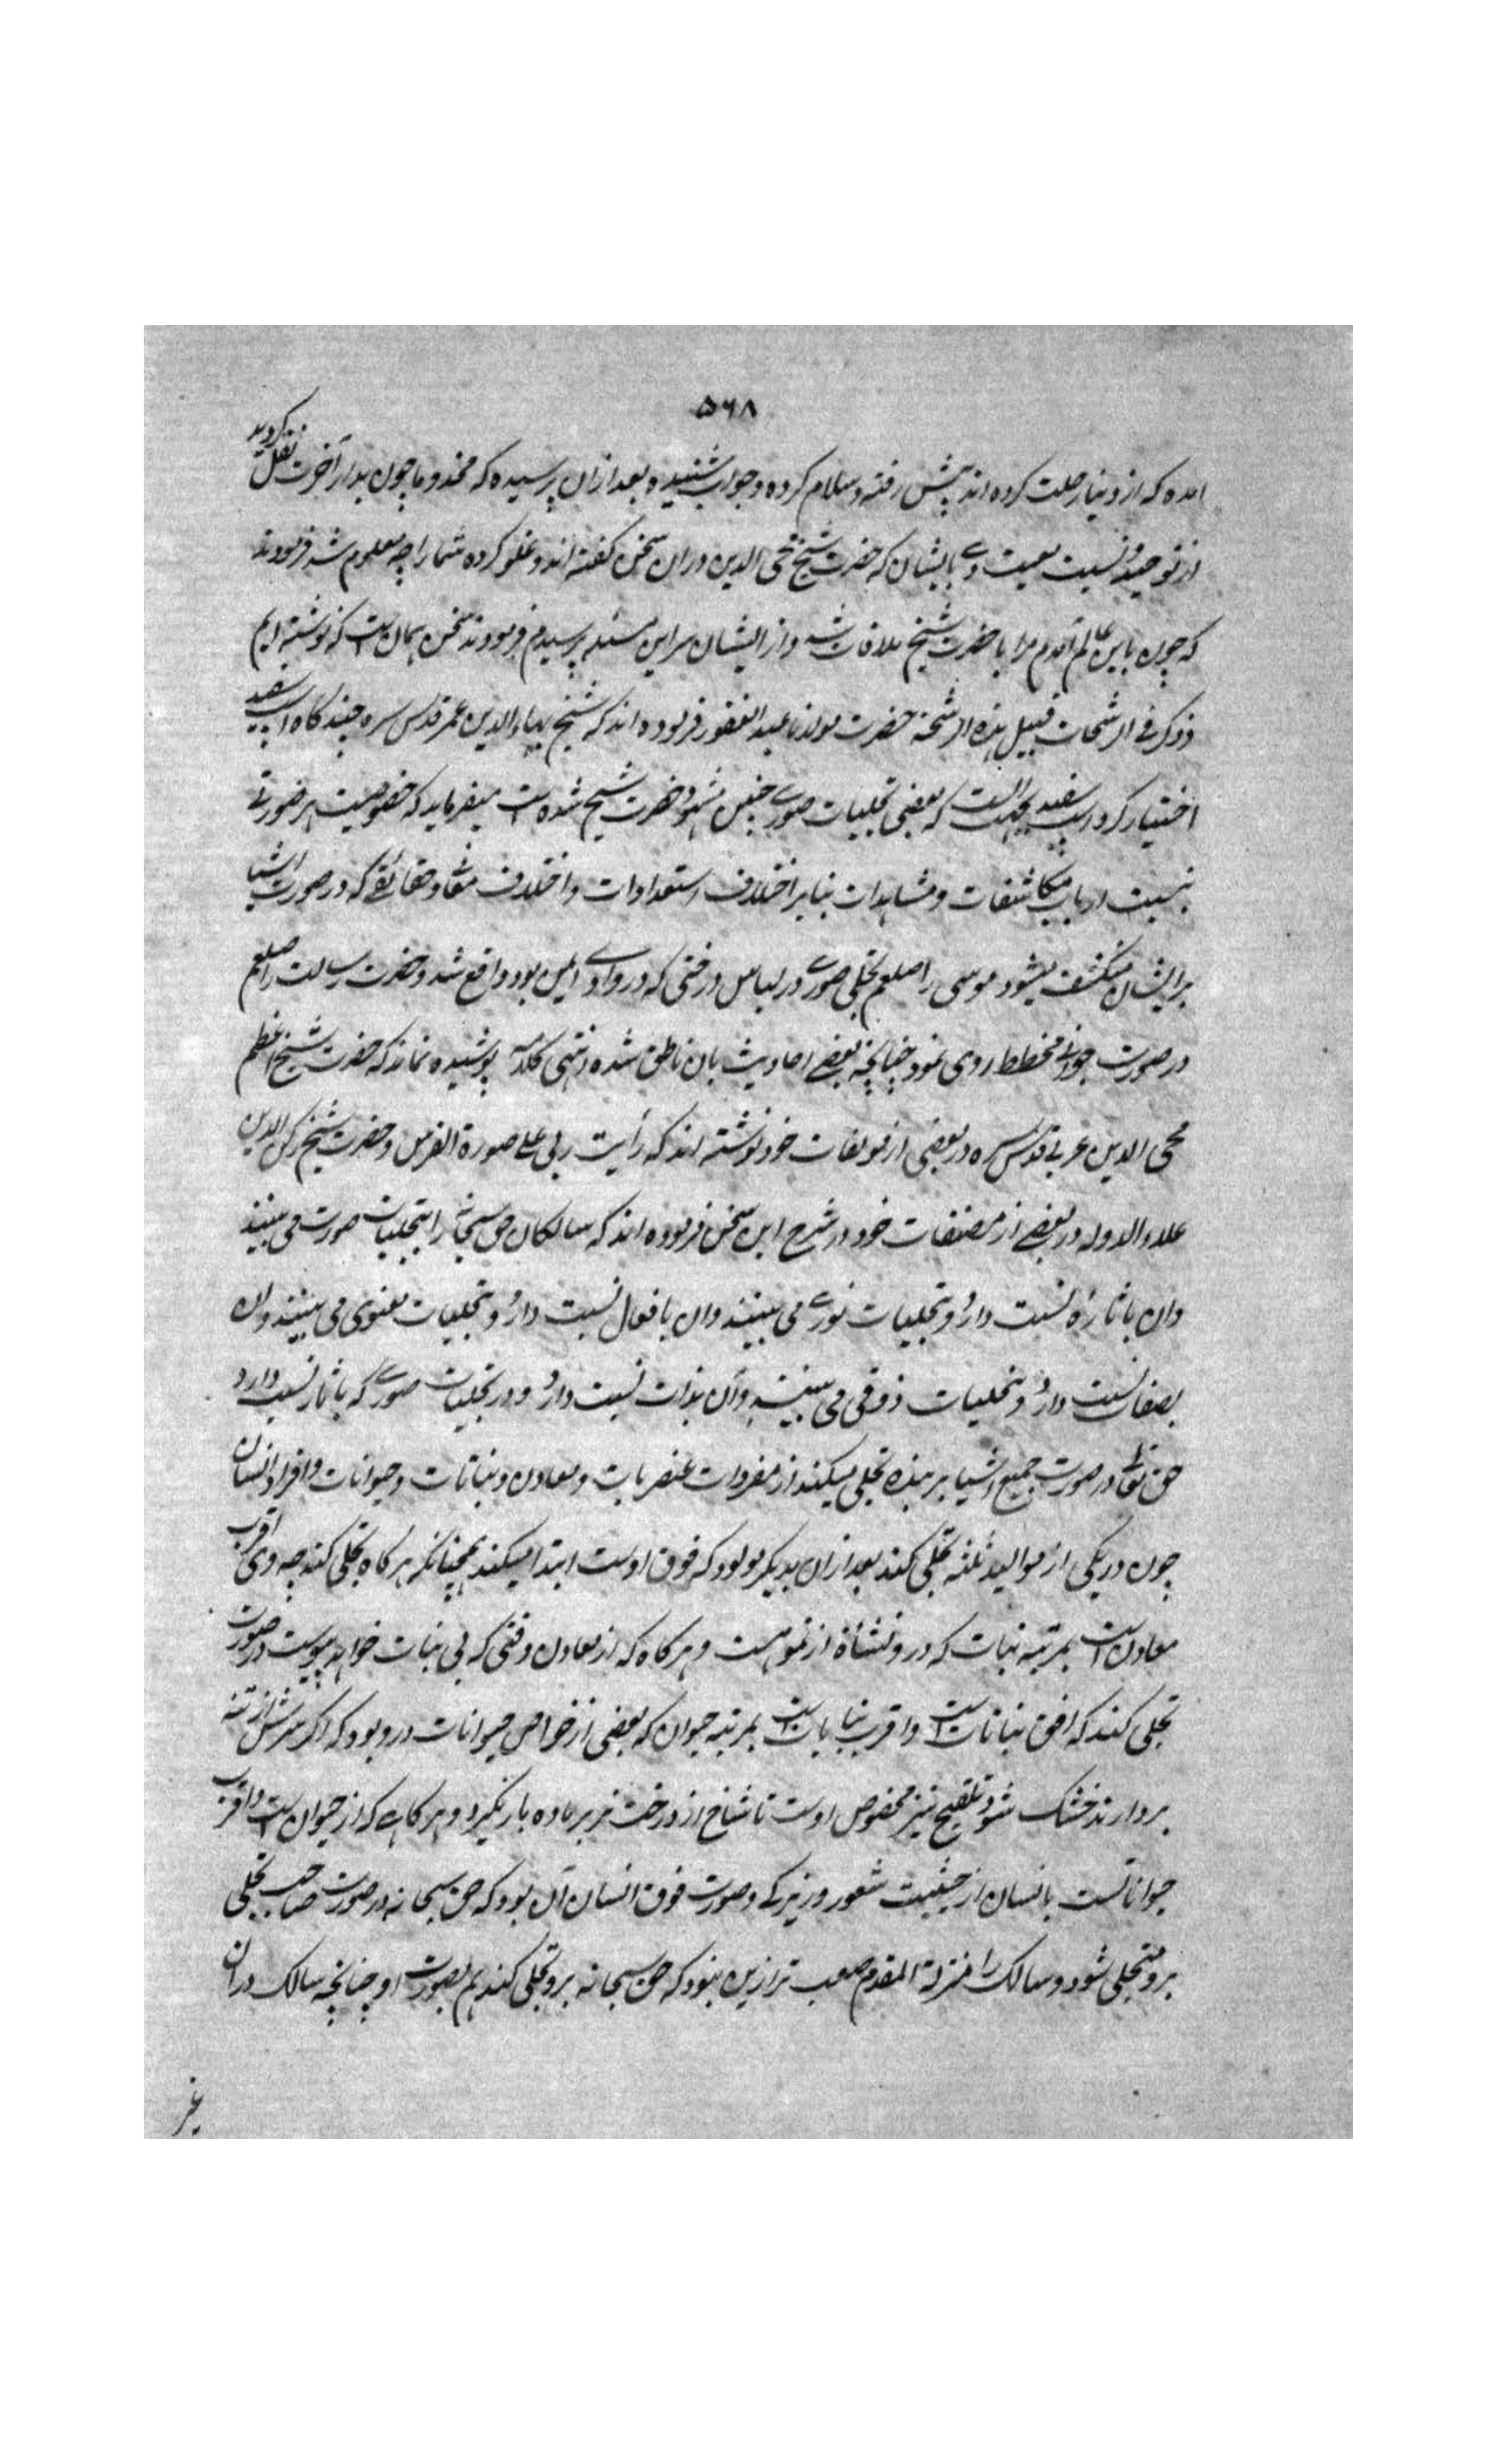 ۵۶۸
امده که از دنیا رحلت کرده اند پیش رفته و سلام کرده و جواب شنیده و بعد ازان پرسیده که مخدوما چون بدار آخرت نقل کردید
از توحید و نسبت معیت وی باشیان که حضرت شیخ محی الدین دران سخن گفته اند و غلو کرده شما را چه معلوم شد فرمودند
که چون باین عالم آمدم مرا با حضرت شیخ ملاقات شد و از ایشان سر این مسئله پرسیدم فرمودند سخن همان است که نوشته ایم
و ذکر فی الرشحات قبیل هذه الرشحة حضرت مولانا عبد الغفور فرموده اند که شیخ بهاء الدین عمر قدس سره چند گاه اسپ سفید
اختیار کرد اسپ سفید بجهت انست که بعضی تجلیات صوری چنین مشهود حضرت شیخ شده است میفرماید که خصوصیت هر صورتی
نسبت ارباب مکاشفات و مشاهدات بنابر اختلاف استعدادات و اختلاف معانی و حقائقی که در صورت اشیا
بر ایشان منکشف میشود موسی را صلعم تجلی صوری در لباس درختی که در وادی ایمن بود واقع شد و حضرت رسالت را صلعم
در صورت جوانی مخطط روی نمود چنانچه بعضی احادیث بان ناطق شده انتهی کلامه پوشیده نماند که حضرت شیخ اعظم
محی الدین عربی قدس سره در بعضی از مولفات خود نوشته اند که رأیت ربی علی صورة الفرس و حضرت شیخ رکن الدین
علاء الدوله در بعضی از مصنفات خود در شرح این سخن فرموده اند که سالکان حق سبحانه را بتجلیات صورت می بینند
وان باثاره نسبت دارد و تجلیات نوری می بینند وان بافعال نسبت دارد و تجلیات معنوی می بینند وان
بصفات نسبت دارد و تجلیات ذوقی می بینند وآن بذات نسبت دارد و در تجلیات صوری که باثار نسبت دارد
حق تعالی در صورت جمیع اشیا بر بنده تجلی میکند از مفردات عنصریات و معادن و نباتات و حیوانات و افراد انسان
چون در یکی از موالید ثلثه تجلی کند بعد ازان بدیگر مولود که فوق اوست ابتدا میکند همچنانکه هر گاه تجلی کند چه وی اقرب
معادن است بمرتبه نبات که در و نشأة از نمو هست و هر گاه که از معادن وقتی که بی نبات خواهد پیوست در صورت
تجلی کند که افق نباتات است و اقرب نباتات است بمرتبه حیوان که بعضی از خواص حیوانات در و بود که اگر سرش از تنه
بردارند خشک شود و تلقیح نیز مخصوص اوست تا شاخ از درخت نر بر ماده بار نگیرد و هر گاهی که از حیوان است و اقرب
حیواناتست بانسان از حیثیت شعور و زیرکی و صورت فوق انسان آن بود که حق سبحانه در صورت صاحب تجلی
برو متجلی شود و سالک را مزلة القدم صعب تر ازین نبود که حق سبحانه برو تجلی کند هم بصورت او چنانچه سالک دران
غیر